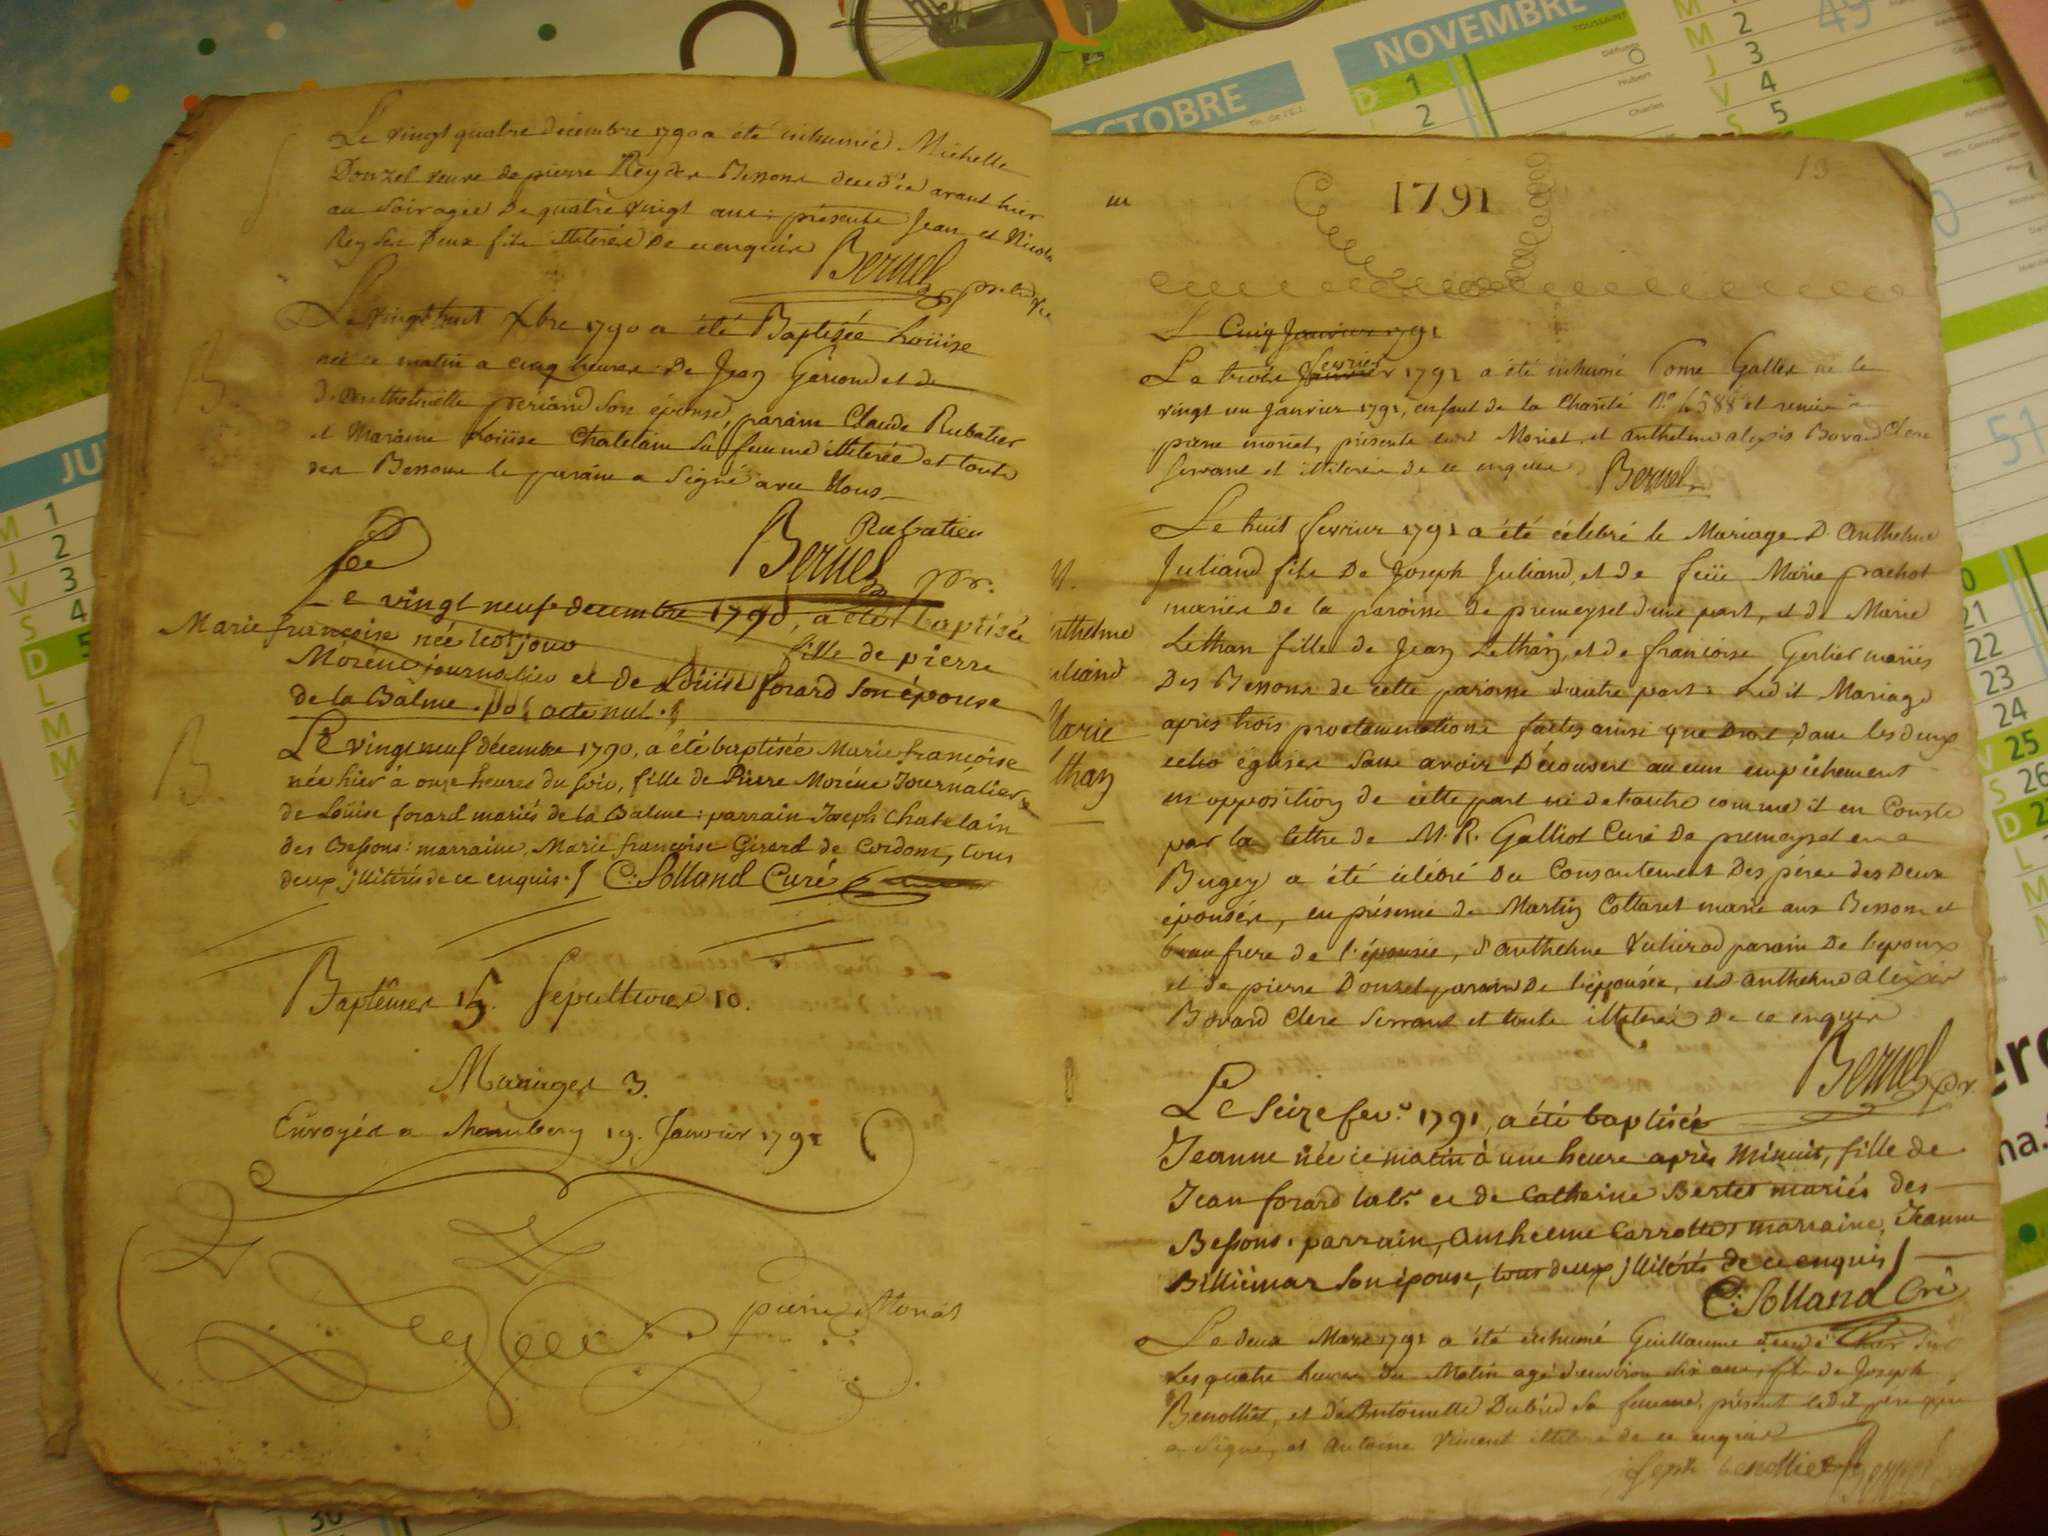 Le vingt quatre decembre 1790 a été inhumée Michelle
Donzel veuve de pierre Rey des Bessons decedée avant hier
au soir agée de quatre vingt ans: présents Jean et Nicolas
Rey ses Deux fils illiterés De ce enquis
Bernel
Le vingt huit Xbre 1790 a été Baptisée Loüise
née ce matin a cinq heures De Jean Geriond et de
D'Anthelmette periand son épouse, parain Claude Rubatier
et Maraine Loüise Chatelain sa femme illiterée et touts
des Bessons le parain a Signé avec Nous
Rubatier
Bernel pr.
Le vingt neuf decembre 1790, a été baptisée
Marie françoise née les jour fille de pierre
Moréne journalier et de Loüise forard son épouse
de la Balme. acte nul.
B
Le vingt neuf décembre 1790, a été baptisée Marie françoise
née hier à onze heures du soir, fille de Pierre Moréne Journalier &
de Loüise forard mariés de la Balme: parrain Joseph Chatelain
des Bessons: marraine, Marie françoise Girard de Cordons, tous
deux jlliterés de ce enquis. C: Solland Curé
Baptêmes 15. Sépultures 10.
Mariages 3.
Envoyés a Chambery 19. Janvier 1791
pierre Moriat
13
1791
L Cinq Janvier 1791
Le trois fevrier Janvier 1791 a été inhumé Come Galles né le
vingt un Janvier 1791, enfant de la Charité N.º 4588 et remis a
pierre moriat, présents ledit Moriat et anthelme alexis Bovard Clerc
servant et illiterés de ce enquis Bernel
Le huit fevrier 1791 a été célébré le Mariage D'Anthelme
Juliand fils De Joseph Juliand, et de feüe Marie prachot
mariés De la paroisse de premeysel d'une part, et de Marie
Lethan fille de Jean Lethan, et de françoise Gerlier mariés
Des Bessons de cette paroisse d'autre part: Ledit Mariage
après trois proclamations faites ainsi que Droit, dans les deux
églises sans avoir Découvert aucun empêchement
ni opposition de cette part ni de l'autre comme il en Conste
par la lettre de M. R. Galliot Curé De premeysel en
Bugey a été célébré Du Consentement Des péres des Deux
épousés, en présence de Martin Cottaret marié aux Bessons et
beau frere de l'épousée, d'anthelme Vulierod parain De l'epoux
et de pierre Donzel parain De l'épousée, et d'anthelme alexis
Bovard Clerc Servant et touts illiterés De ce enquis
Bernel pr.
anthelme
uliand
Marie
than
Le seize fev.r 1791, a été baptisée
Jeanne née ce matin à une heure après minuit, fille de
Jean forard lab.r et de Catherine Bertet mariés des
Bessons: parrain, Anthelme Carrottet marraine, Jeanne
Billiémaz son épouse, tous deux jlliterés de ce enquis
C: Solland Cré
Le deux Mars 1791 a été inhumé Guillaume decedé hier sur
Les quatre heures Du Matin agé d'environ dix ans, fils de Joseph
Benolliet, et d'Antoinette Dubied sa femme, présent ledit père qui
a signé, et Antoine Vincent illiteré de ce enquis
Joseph benolliet Bernel
JU
M 1
J 2
V 3
S 4
D 5
L
M
M
30
OCTOBRE
NOVEMBRE
TOUSSAINT
Défunts
Hubert
Charles
D 1
L 2
M
M 2
J 3
V 4
S 5
49
51
21
22
23
24
V 25
S 26
D 2
L
M
M